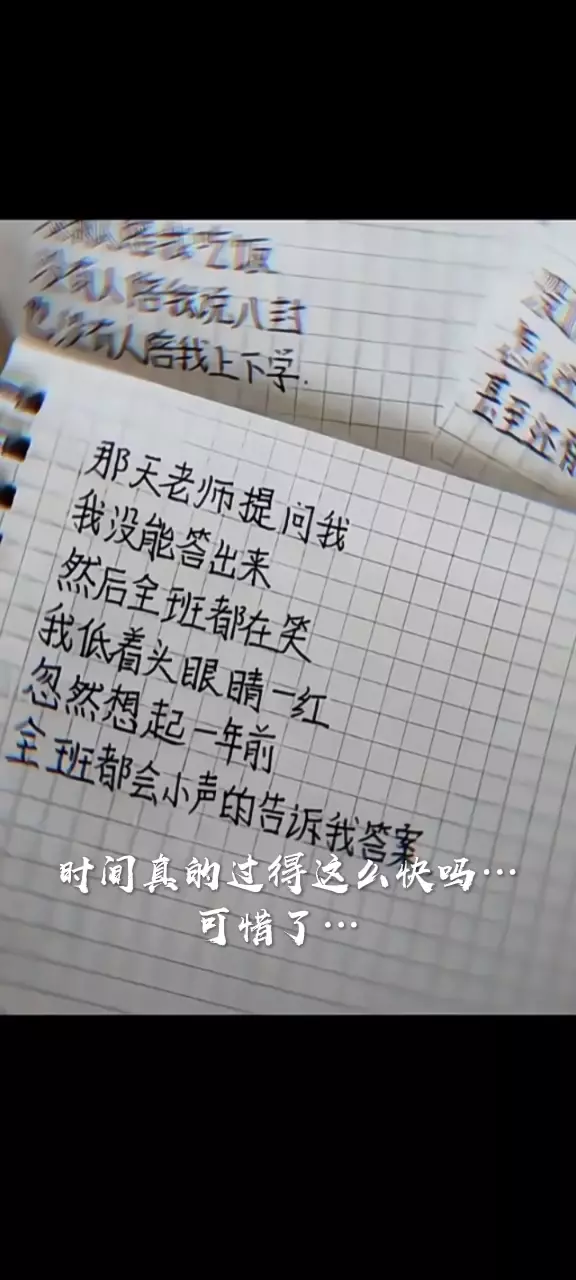 没有人陪我吃饭
没有人陪我玩八封
也没有人陪我上下学.
甚至还
那天老师提问我
我没能答出来
然后全班都在笑
我低着头眼睛一红
忽然想起一年前
全班都会小声的告诉我答案
时间真的过得这么快吗…
可惜了…